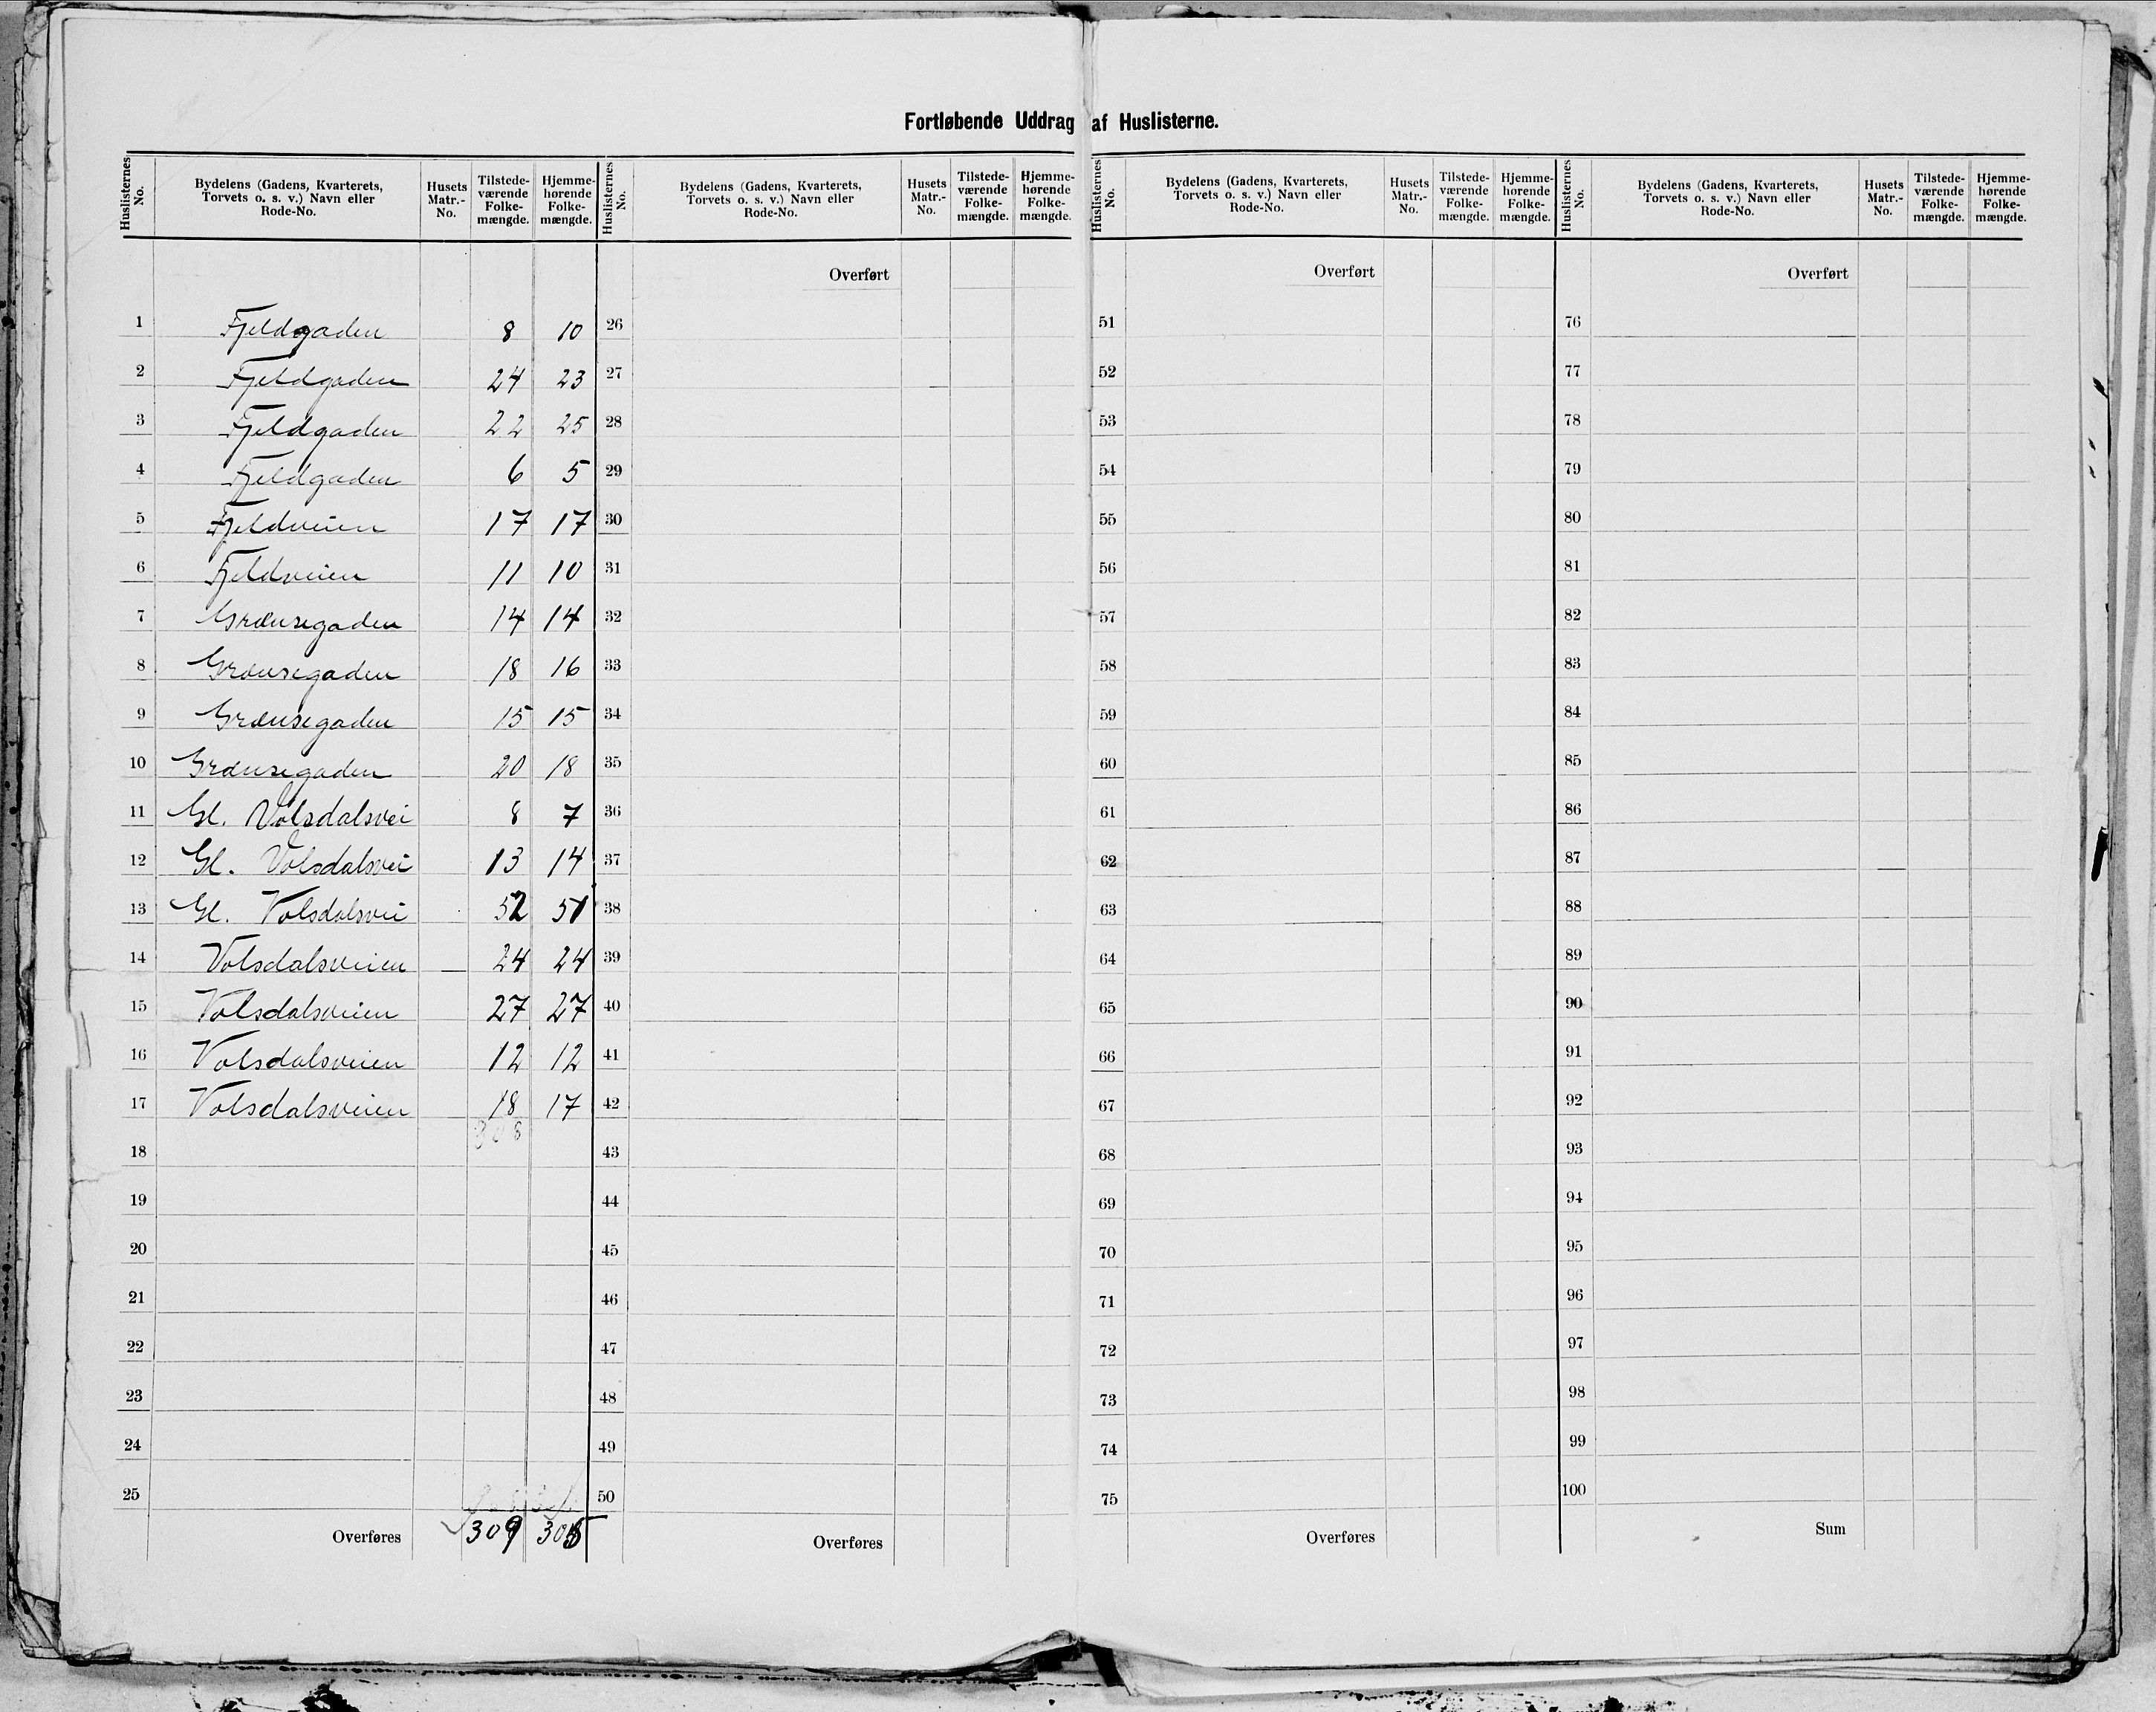 Fortløbende Uddrag af Huslisterne.
Huslisternes No. | Bydelens (Gadens, Kvarterets, Torvets o. s. v.) Navn eller Rode-No. | Husets Matr.-No. | Tilstede-værende Folke-mængde. | Hjemme-hørende Folke-mængde. | Huslisternes No. | Bydelens (Gadens, Kvarterets, Torvets o. s. v.) Navn eller Rode-No. | Husets Matr.-No. | Tilstede-værende Folke-mængde. | Hjemme-hørende Folke-mængde. | Huslisternes No. | Bydelens (Gadens, Kvarterets, Torvets o. s. v.) Navn eller Rode-No. | Husets Matr.-No. | Tilstede-værende Folke-mængde. | Hjemme-hørende Folke-mængde. | Huslisternes No. | Bydelens (Gadens, Kvarterets, Torvets o. s. v.) Navn eller Rode-No. | Husets Matr.-No. | Tilstede-værende Folke-mængde. | Hjemme-hørende Folke-mængde.
Overført Overført Overført
1 Fjeldgaden 8 10 26 51 76
2 Fjeldgaden 24 23 27 52 77
3 Fjeldgaden 22 25 28 53 78
4 Fjeldgaden 6 5 29 54 79
5 Fjeldveien 17 17 30 55 80
6 Fjeldveien 11 10 31 56 81
7 Grænsegaden 14 14 32 57 82
8 Grænsegaden 18 16 33 58 83
9 Grænsegaden 15 15 34 59 84
10 Grænsegaden 20 18 35 60 85
11 Gl. Volsdalsvei 8 7 36 61 86
12 Gl. Volsdalsvei 13 14 37 62 87
13 Gl. Volsdalsvei 52 51 38 63 88
14 Volsdalsveien 24 24 39 64 89
15 Volsdalsveien 27 27 40 65 90
16 Volsdalsveien 12 12 41 66 91
17 Volsdalsveien 18 17 42 67 92
308
18 43 68 93
19 44 69 94
20 45 70 95
21 46 71 96
22 47 72 97
23 48 73 98
24 49 74 99
25 50 75 100
Overføres 309 305 Overføres Overføres Sum